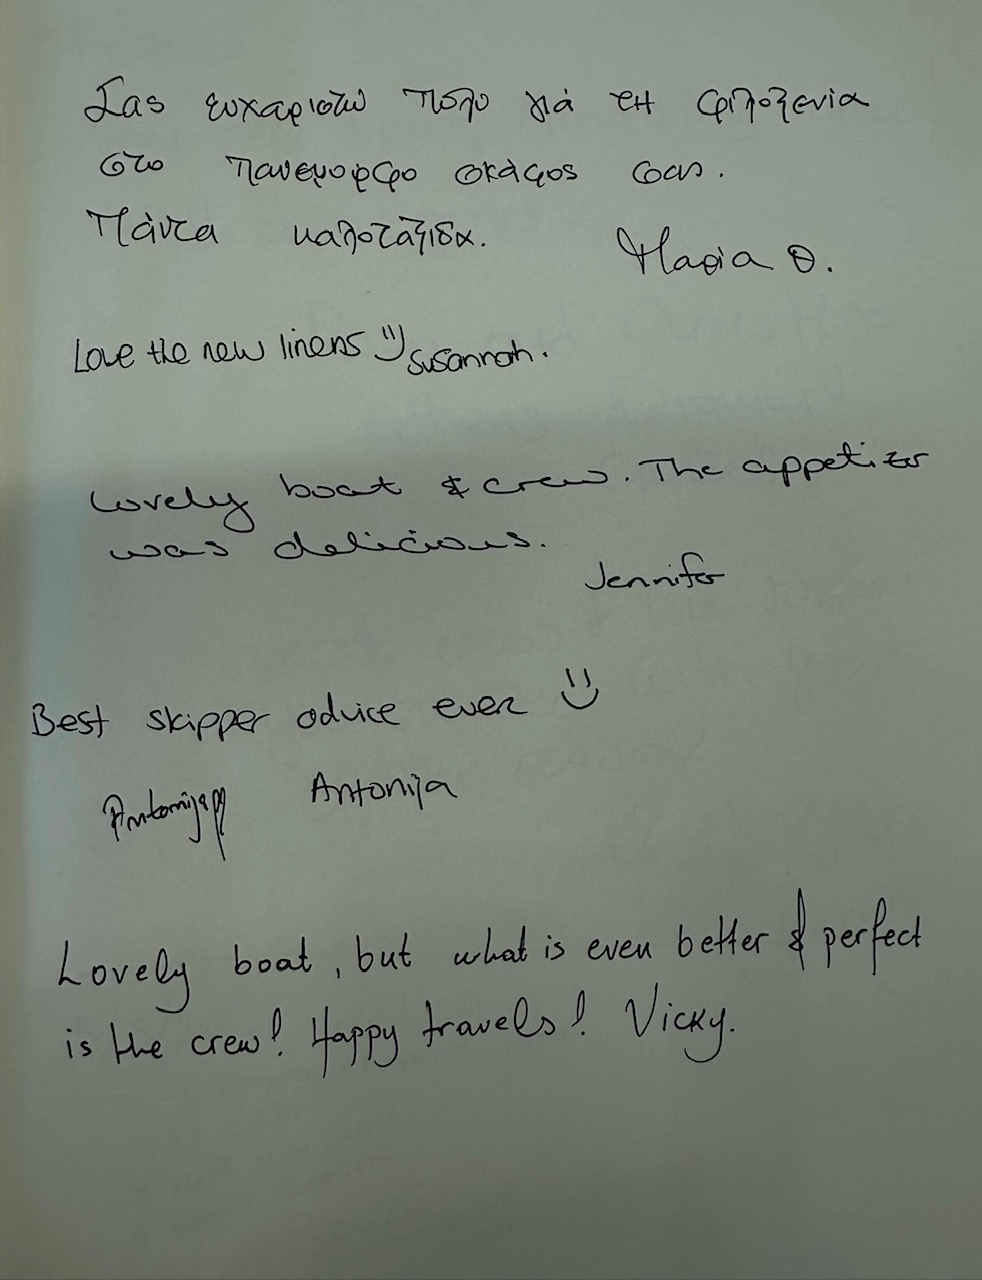 Σας ευχαριστώ πολυ γιά τη φιλοξενια
στο πανεμορφο σκάφος σας.
Πάντα καλοτάξιδα. Μαρία Θ.
Love the new linens :) Susannah.
Lovely boat & crew. The appetizer
was delicious.
Jennifer
Best skipper advice ever :)
Antonija
Lovely boat, but what is even better & perfect
is the crew! Happy travels! Vicky.